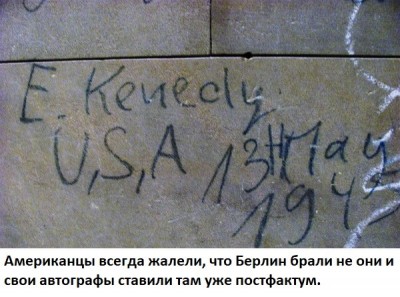 E. Kenedy
U,S,A 13TH May
1945
Американцы всегда жалели, что Берлин брали не они и
свои автографы ставили там уже постфактум.